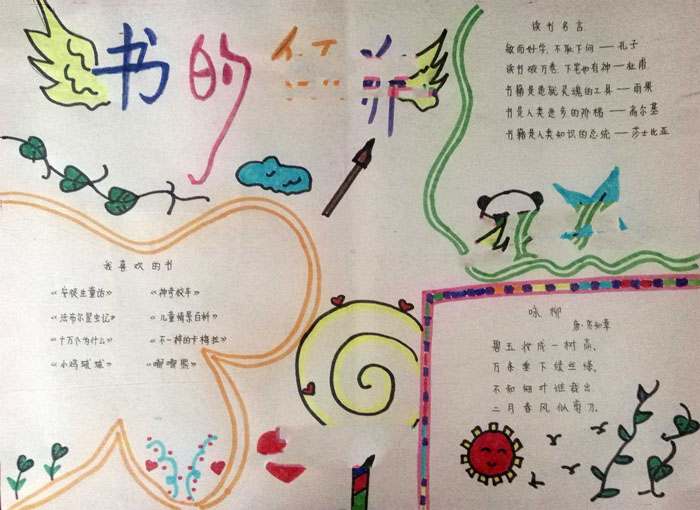 书的
读书名言
敏而好学,不耻下问——孔子
读书破万卷,下笔如有神——杜甫
书籍是造就灵魂的工具——雨果
书是人类进步的阶梯——高尔基
书籍是人类知识的总统——莎士比亚
我喜欢的书
《安徒生童话》 《神奇校车》
《法布尔昆虫记》 《儿童情景百科》
《十万个为什么》 《不一样的卡梅拉》
《小鸡球球》 《嘟嘟熊》
咏柳
唐·贺知章
碧玉妆成一树高,
万条垂下绿丝绦,
不知细叶谁裁出,
二月春风似剪刀.